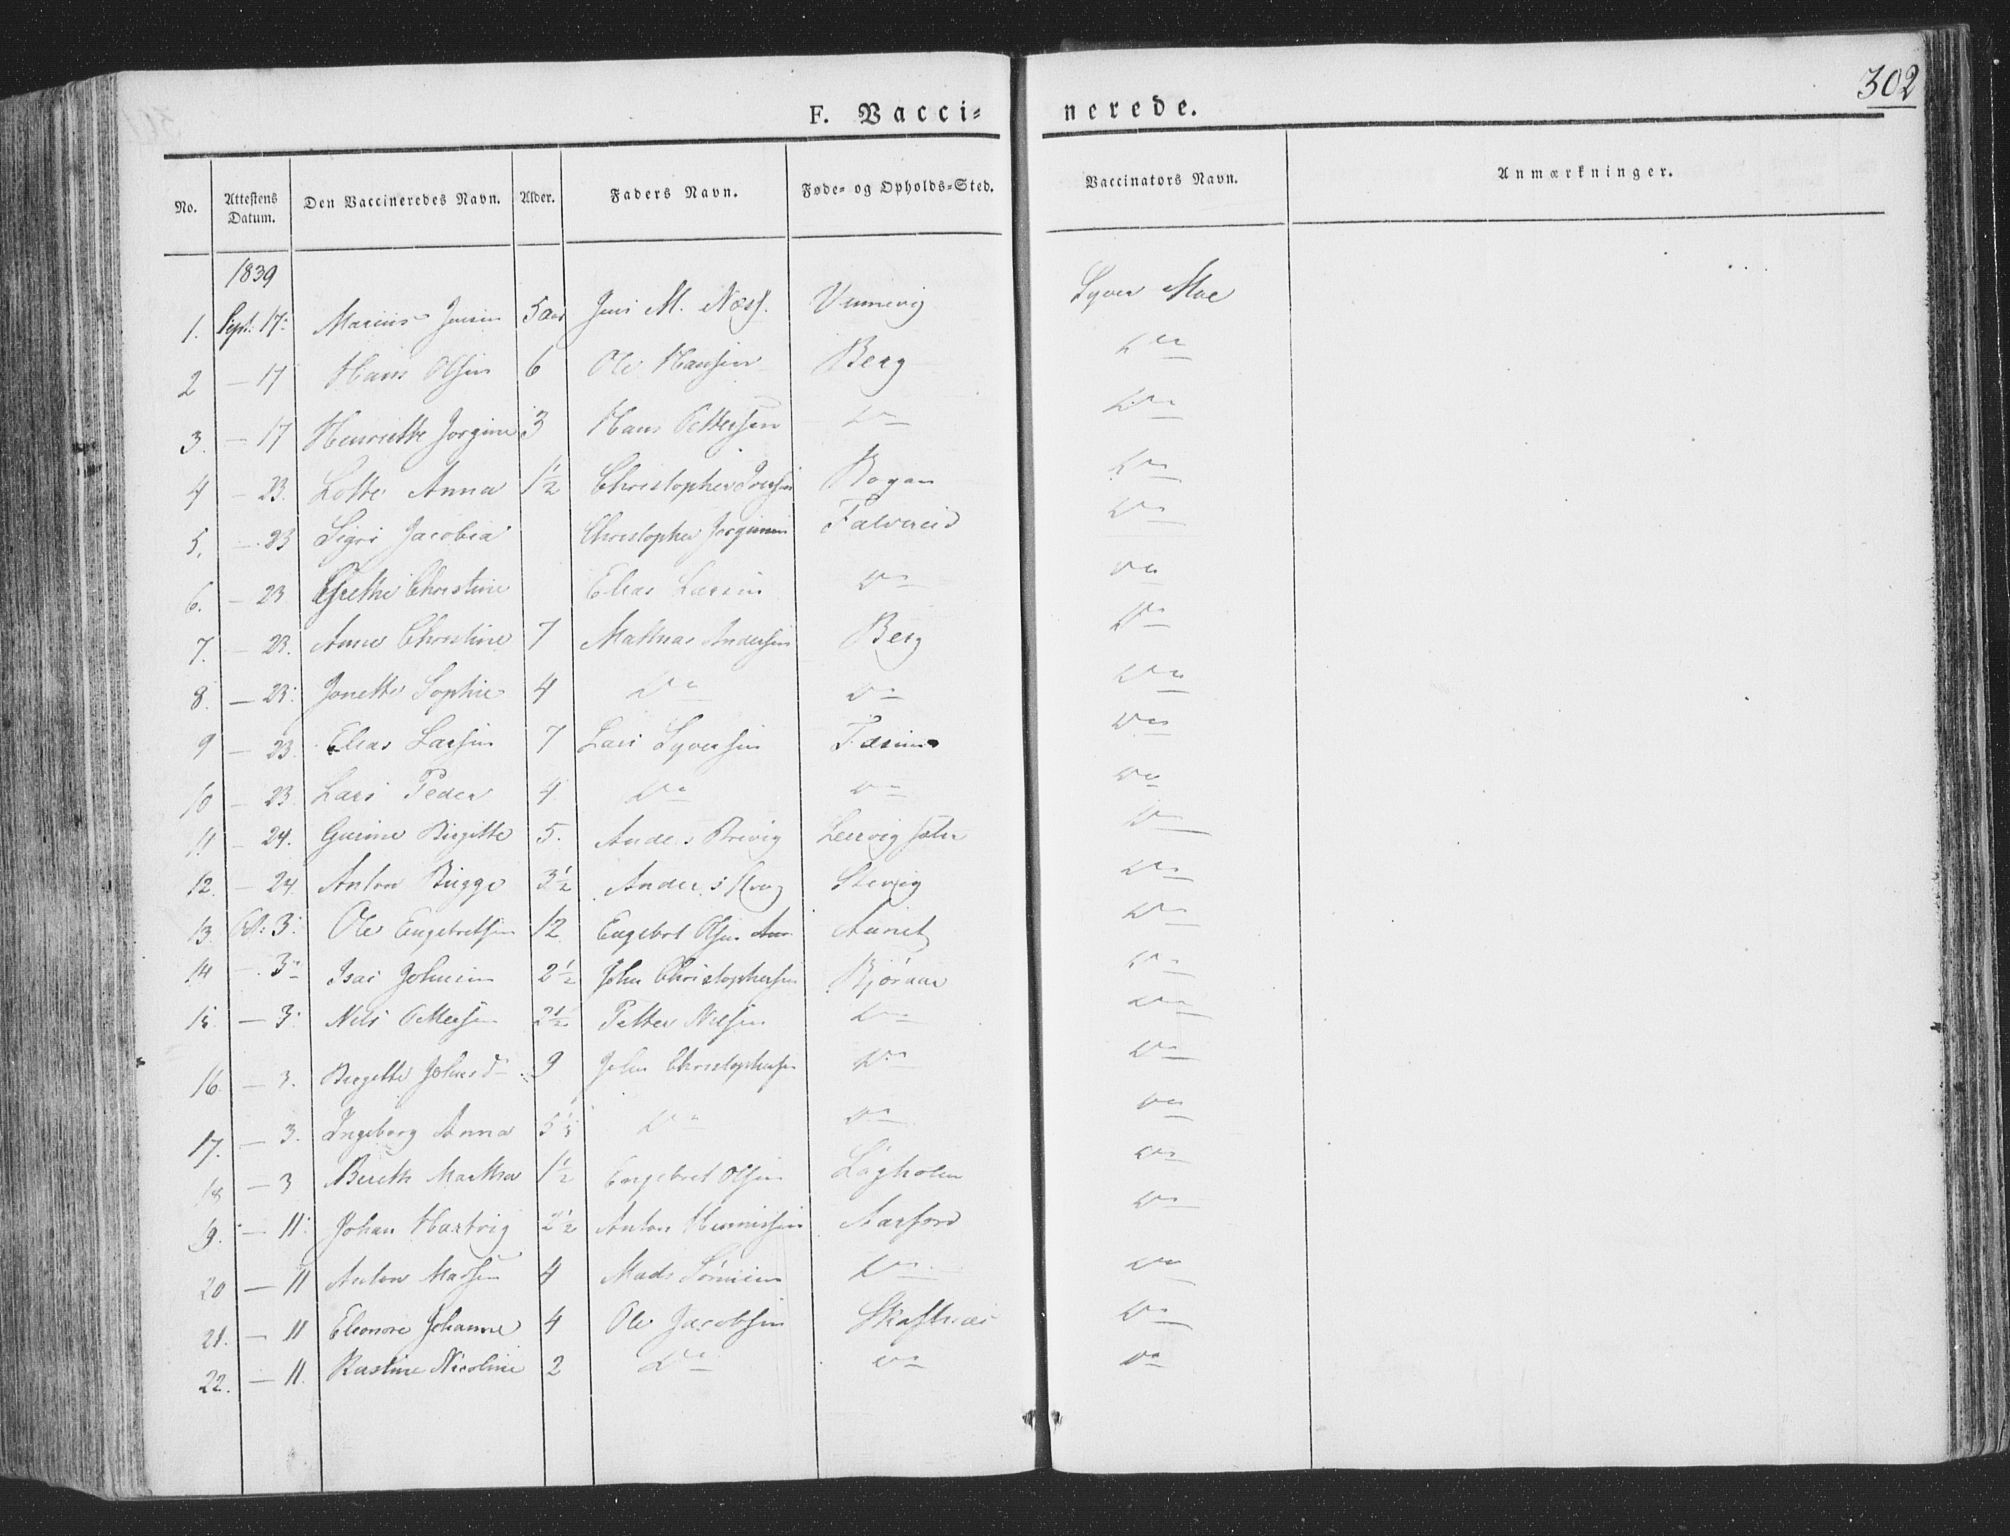 302
F. Vacci= nerede.
No. Attestens Datum. Den Vaccineredes Navn. Alder. Faders Navn. Føde= og Opholds=Sted. Vaccinators Navn. Anmærkninger.
1839
1. Sept: 17: Marius Jensen 5 Aar Jens M. Næss. Vennevig Syver Moe
2 — 17 Hans Olsen 6 Ole Hansen Berg Do
3. — 17 Henriette Jørgine 3 Hans Pettersen Do Do
4 — 23. Lotte Anna 1½ Christopher Bogan Do
5. — 23 Sigri Jacobia Christopher Do
6. — 23 Grethe Christine Elias Larsen Do Do
7. — 23. Anne Christine 7 Mathias Andersen Berg Do
8. — 23: Jonette Sophie 4 Do Do Do
9 — 23. Elias Larsen 7 Lars Syversen Do
10 — 23. Lars Peder 4. Do Do Do
11. — 24. Gurine Birgitte 5. Anders Brevig Do
12. — 24. Anton Bugge 3½ Anders Do
13. Oct: 3: Ole Engebretsen 12 Engebret Olsen Aunet Do
14 — 3: Isac Johnsen 2½ John Christophersen Bjøraae Do
15 — 3: Nils Pettersen 2½ Petter Nilsen Do Do
16. — 3. Birgitte Johnsd 9 John Christophersen Do Do
17. — 3. Ingeborg Anna 5½ Do Do Do
18 — 3 Bereth Martha 1½ Engebret Olsen Løgholm Do
19. — 11: Johan Hartvig 2½ Anton Aarford Do
20 — 11 Anton Madsen 4 Mads Do Do
21. — 11 Eleonore Johanne 4 Ole Jacobsen Do
22. — 11. Rastine Nicoline 2 Do Do Do